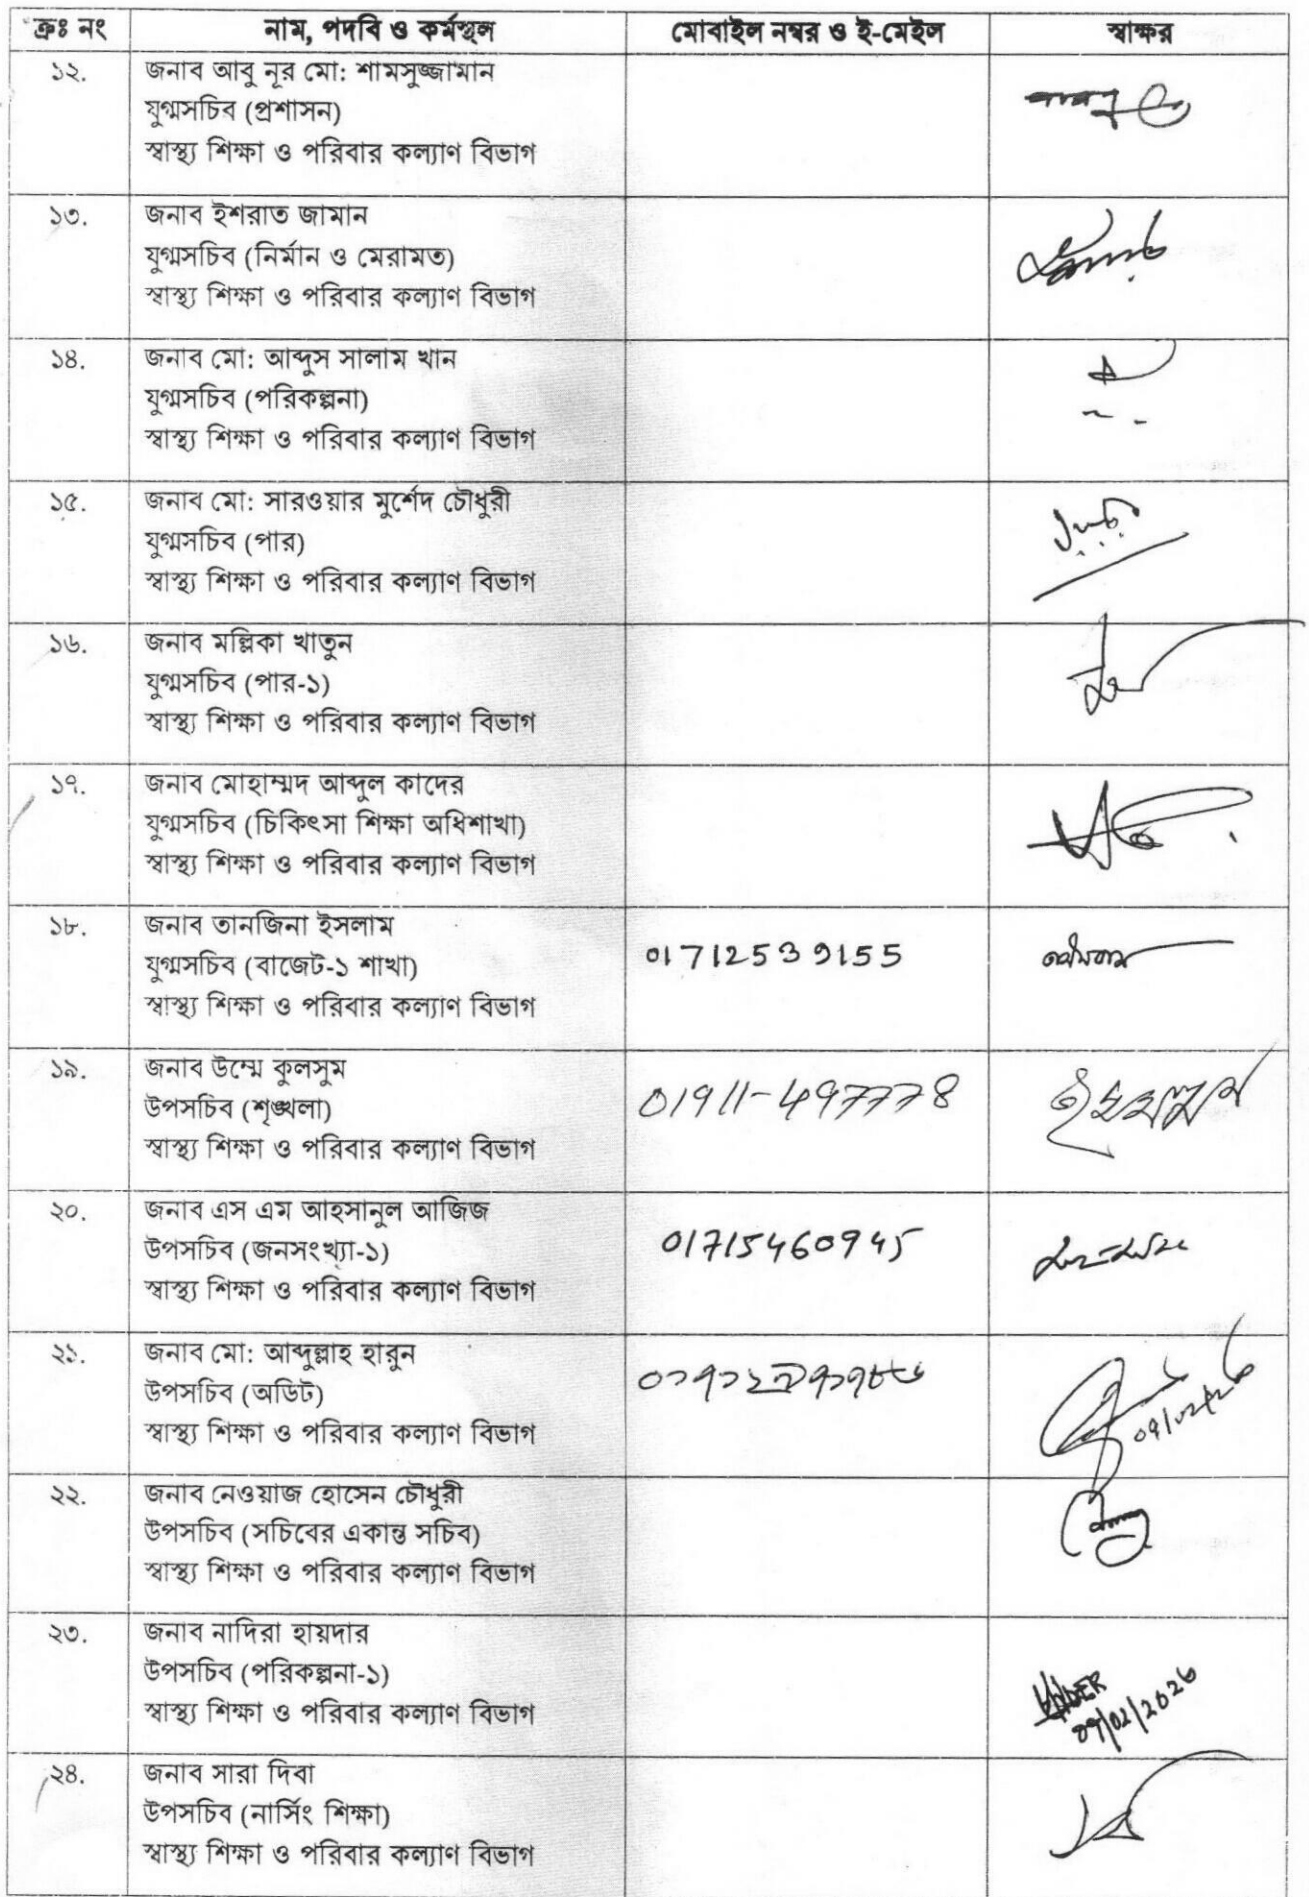 ক্রঃ নং নাম, পদবি ও কর্মস্থল মোবাইল নম্বর ও ই-মেইল স্বাক্ষর
১২. জনাব আবু নূর মো: শামসুজ্জামান
যুগ্মসচিব (প্রশাসন)
স্বাস্থ্য শিক্ষা ও পরিবার কল্যাণ বিভাগ
১৩. জনাব ইশরাত জামান
যুগ্মসচিব (নির্মান ও মেরামত)
স্বাস্থ্য শিক্ষা ও পরিবার কল্যাণ বিভাগ
১৪. জনাব মো: আব্দুস সালাম খান
যুগ্মসচিব (পরিকল্পনা)
স্বাস্থ্য শিক্ষা ও পরিবার কল্যাণ বিভাগ
১৫. জনাব মো: সারওয়ার মুর্শেদ চৌধুরী
যুগ্মসচিব (পার)
স্বাস্থ্য শিক্ষা ও পরিবার কল্যাণ বিভাগ
১৬. জনাব মল্লিকা খাতুন
যুগ্মসচিব (পার-১)
স্বাস্থ্য শিক্ষা ও পরিবার কল্যাণ বিভাগ
১৭. জনাব মোহাম্মদ আব্দুল কাদের
যুগ্মসচিব (চিকিৎসা শিক্ষা অধিশাখা)
স্বাস্থ্য শিক্ষা ও পরিবার কল্যাণ বিভাগ
১৮. জনাব তানজিনা ইসলাম
যুগ্মসচিব (বাজেট-১ শাখা) 01712539155
স্বাস্থ্য শিক্ষা ও পরিবার কল্যাণ বিভাগ
১৯. জনাব উম্মে কুলসুম
উপসচিব (শৃঙ্খলা) 01911-497778
স্বাস্থ্য শিক্ষা ও পরিবার কল্যাণ বিভাগ
২০. জনাব এস এম আহসানুল আজিজ
উপসচিব (জনসংখ্যা-১) 01715460945
স্বাস্থ্য শিক্ষা ও পরিবার কল্যাণ বিভাগ
২১. জনাব মো: আব্দুল্লাহ হারুন
উপসচিব (অডিট)
স্বাস্থ্য শিক্ষা ও পরিবার কল্যাণ বিভাগ ০৭/০২/২৬
২২. জনাব নেওয়াজ হোসেন চৌধুরী
উপসচিব (সচিবের একান্ত সচিব)
স্বাস্থ্য শিক্ষা ও পরিবার কল্যাণ বিভাগ
২৩. জনাব নাদিরা হায়দার
উপসচিব (পরিকল্পনা-১)
স্বাস্থ্য শিক্ষা ও পরিবার কল্যাণ বিভাগ 09/02/2026
২৪. জনাব সারা দিবা
উপসচিব (নার্সিং শিক্ষা)
স্বাস্থ্য শিক্ষা ও পরিবার কল্যাণ বিভাগ